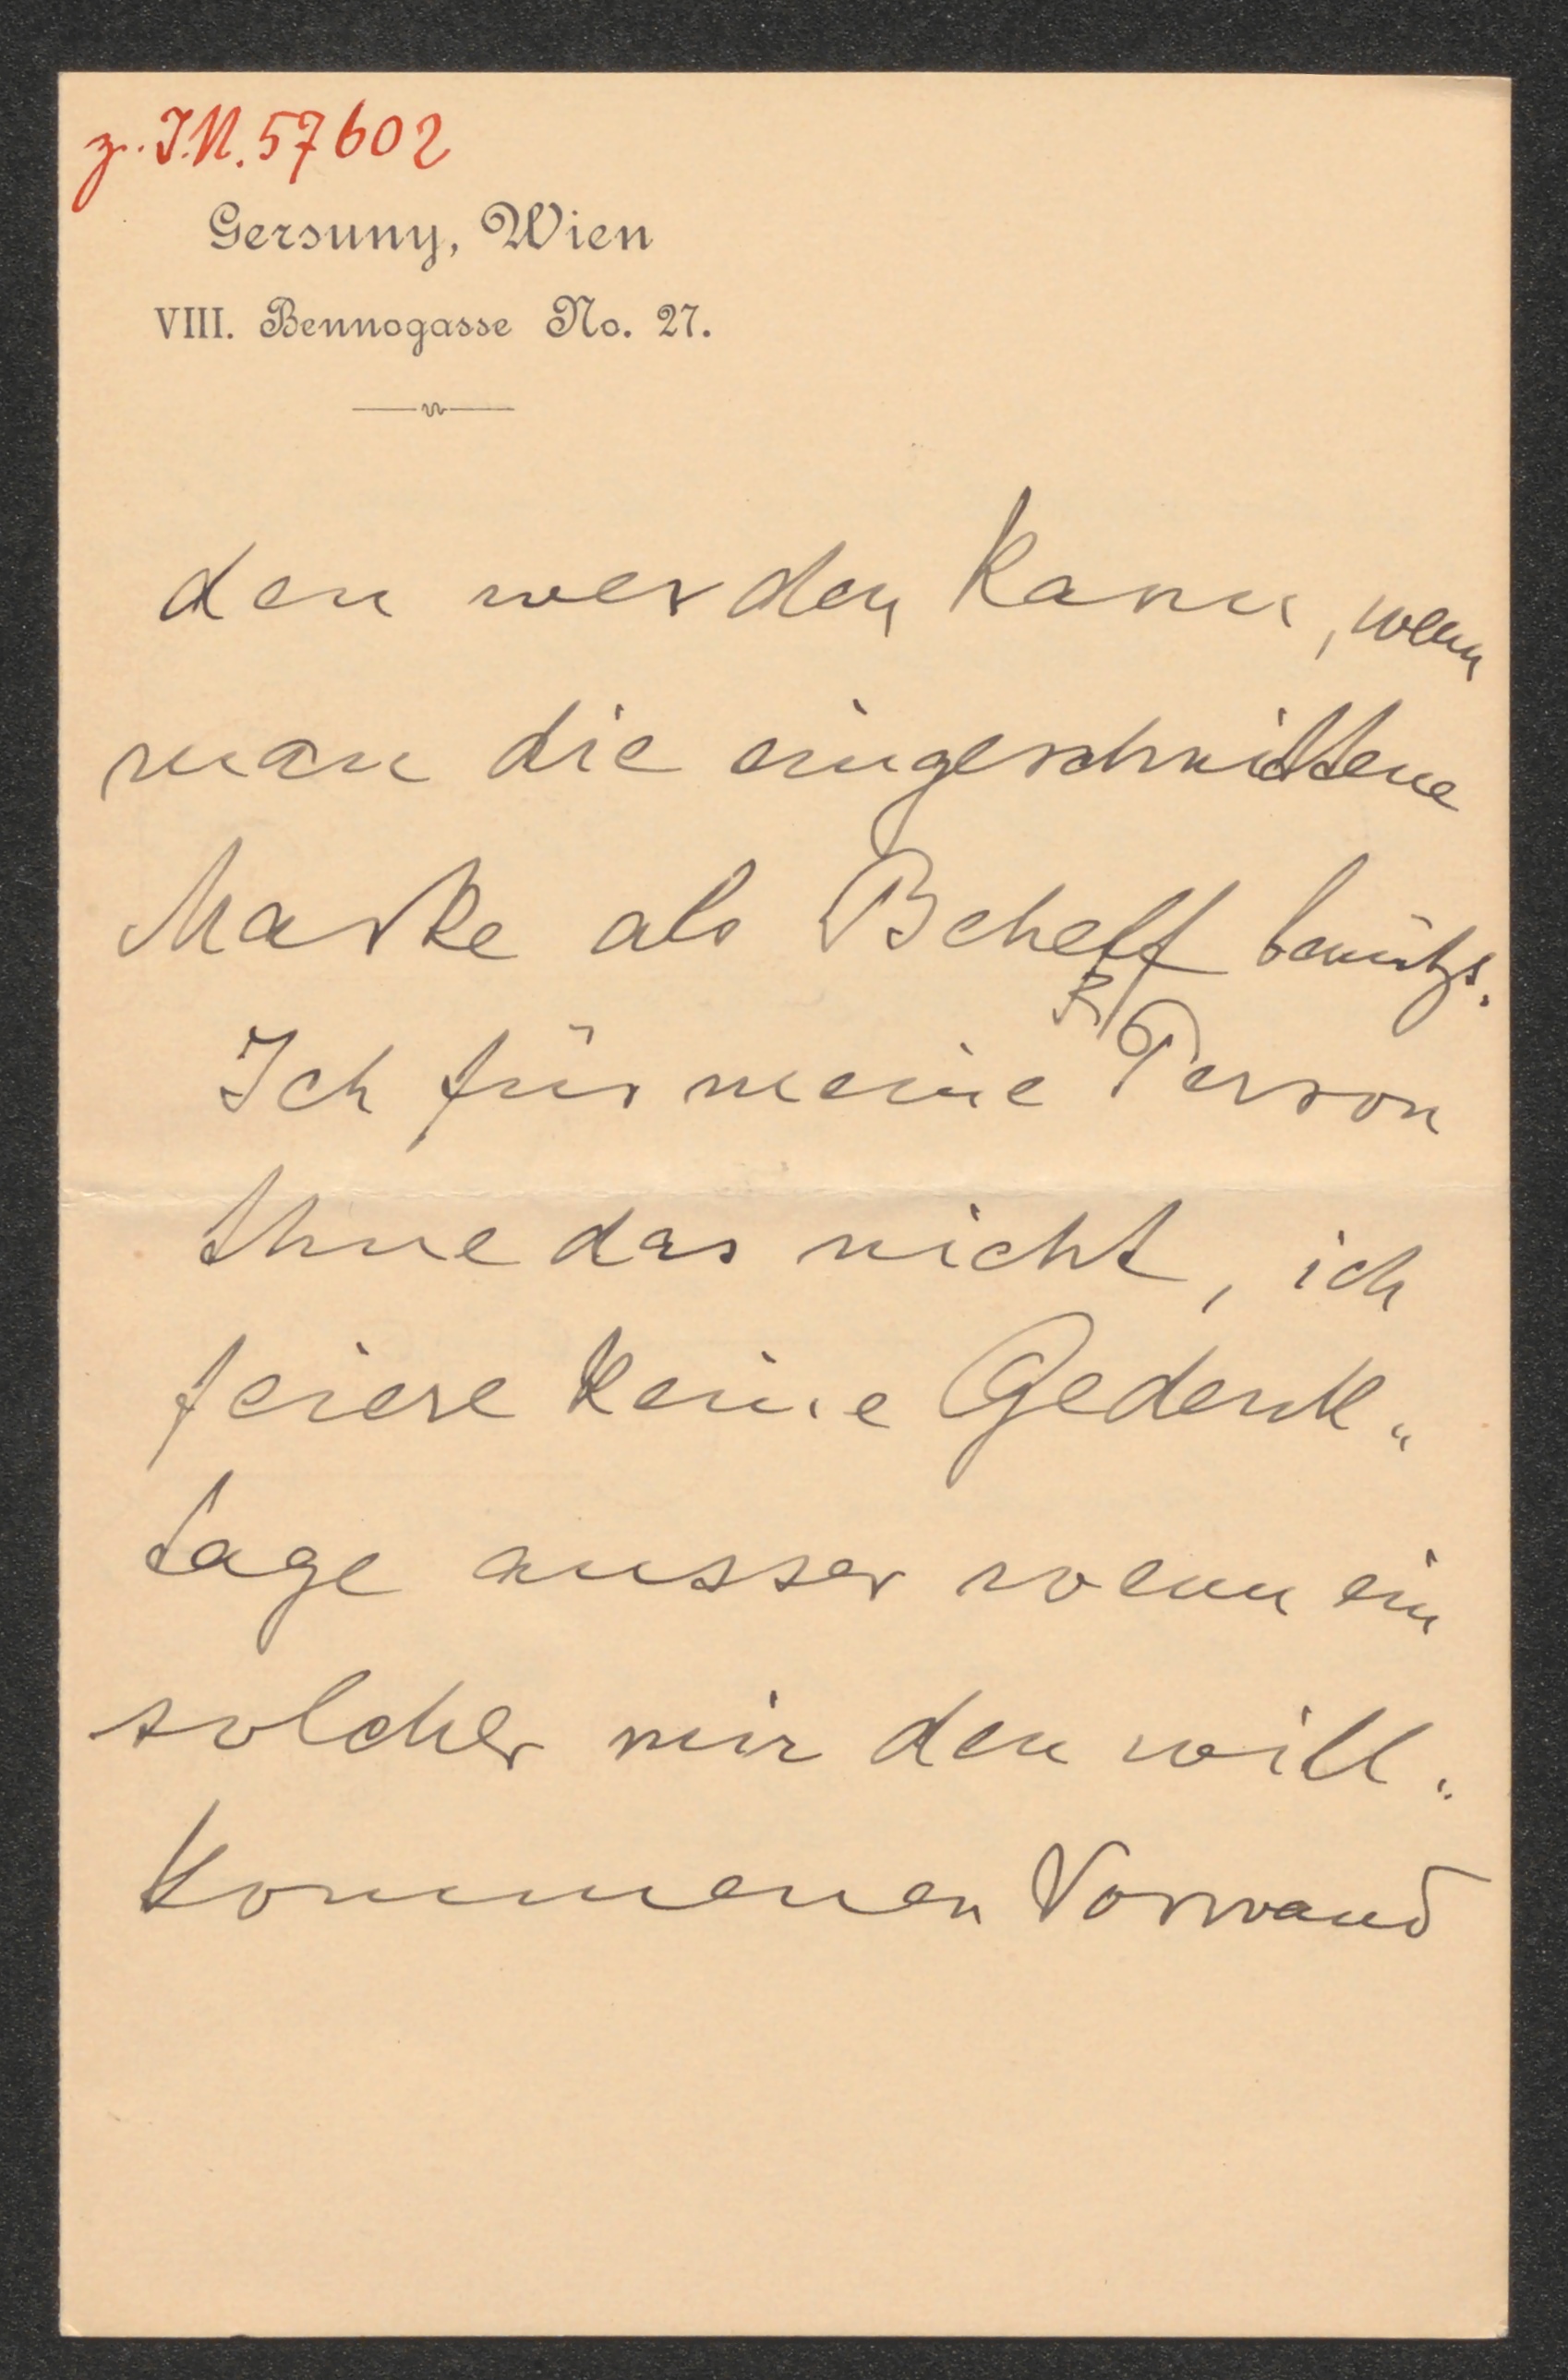 z. I.N. 57602
Gersuny, Wien
VIII. Bennogasse No. 27.
den werden kann, wenn
man die eingeschnittene
Marke als Behelf benützt.
Ich für meine Person
thue das nicht, ich
feiere keine Gedenk„
tage ausser wenn ein
solcher mir den will„
kommenen Vorwand